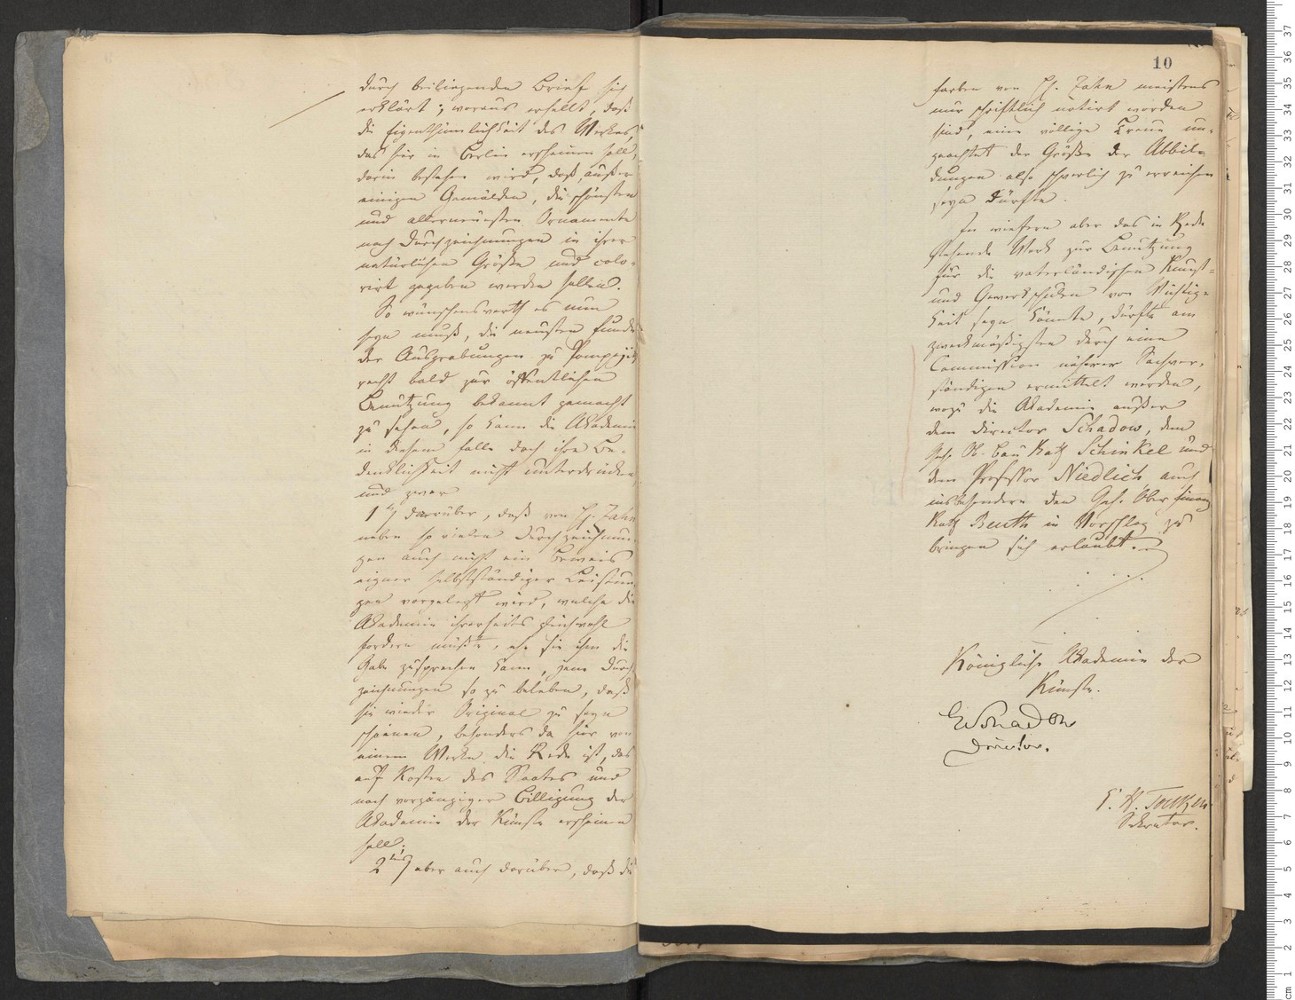 durch beiliegenden Brief sich
erklärt; woraus erhellt, daß
die Eigenthümlichkeit des Werkes,
das hier in Berlin erscheinen soll
darin bestehen wird, daß, außer
einigen Gemälden, die schönsten
und allerneusten Ornamente
nach Durchzeichnungen in ihrer
natürlichen Größe und colo-
rirt gegeben werden sollen.
So wünschenswerth es nun
seyn muß, die neusten Funde
der Ausgrabungen zu Pompeji
recht bald zur öffentlichen
Benutzung bekannt gemacht
zu sehen, so kann die Akademie
in diesem Falle doch ihre Be-
denklichkeit nicht unterdrücken
und zwar
1) darüber, daß von H. Zahn
neben so vielen Durchzeichnun-
gen auch nicht ein Beweis
eigner selbstständiger Leistun-
gen vorgelegt wird, welche die
Akademie ihrerseits
fordern müßte, ehe sie ihm die
Gabe zusprechen kann, jene Durch
zeichnungen so zu beleben, daß
sie wieder Original zu seyn
scheinen, besonders da hier von
einem Werke die Rede ist, das
auf Kosten des Staates und
nach vorgängiger Billigung der
Akademie der Künste erscheinen
soll;
2) aber auch darüber, daß die
10
Farben von H. Zahn meistens
nur schriftlich notirt worden
sind, eine völlige Treue un-
geachtet der Größe der Abbil-
dungen also schwerlich zu erreichen
seyn dürfte.
In wiefern aber das in Rede
stehende Werk zur Benutzung
für die vaterländischen Kunst-
und Gewerkschulen von Wichtig-
keit seyn könnte, dürfte am
zweckmäßigsten durch eine
Commission mehrerer Sachver-
ständigen ermittelt werden,
wozu die Akademie außer
dem Director Schadow, dem
Geh. O. Bau Rath Schinkel und
dem Professor Niedlich auch
insbesondere den Geh. Ober Finanz
Rath Beuth in Vorschlag zu
bringen sich erlaubt.
Königliche Akademie der
Künste.
G Schadow
Director.
E. H. Toelken
Sekretar.